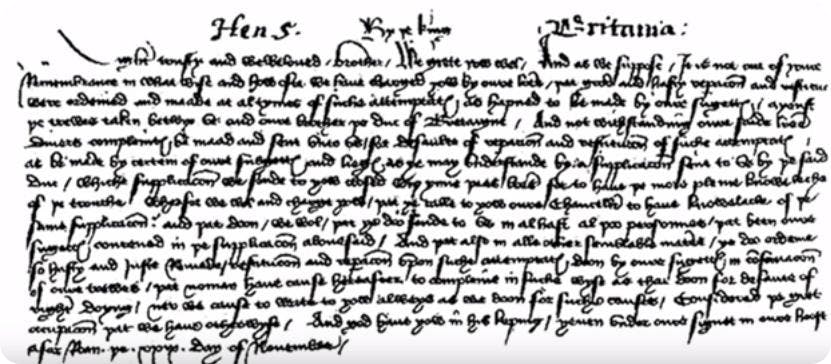 Hen 5. By þe king Britania:
trusty and welbeloved brother / We grete yow wel / And as we suppose / It is not out of youre
Remembrance in what wyse and how ofte we have charged yow by oure lres / þat good and hasty reparacon and restituc
were ordeined and maade at al tymes of suche attemptats / as hapned to be made by oure suggetts / ayenst
þe trewes taken betwyx us and oure brother þe duc of Bretayne / And not withstanding oure saide lres
divers complaints be maad and sent unto us / for defaulte of reparacon and restitucon of suche attemptats /
as be made by certein of oure suggetts and lieges as ye may understande by a supplicacon sent to us by þe said
duc / whiche supplicacon we sende to yow closed wiþ ynne þees lres for to have þe more pleine knoweleche
of þe trouthe / Wherfore we wol and charge yow / þat ye calle to yow oure Chanceller to have knowelache of þe
same supplicacon: and þat doon / we wol / þat ye do sende to us in al hast al þoo personnes / þat been oure
suggetts contened in þe supplicacon abovesaid / And þat also in alle other semblable materes / ye do ordeine
so hasty and Juste Remede / restitucon and reparacon upon suche attemptats doon by oure suggetts in conservacon
of oure trewes / þat noman have cause hereafter to compleine in suche wyse as thai doon for defaute of
right doyng / ner we cause to write to yow alweys as we doon for suche causes / Considered þe gret
occupacon þat we have otherwyse / And god have yow in his keping / yeven under oure signet in oure hoost
afor Roan. þe. day of Novembre /